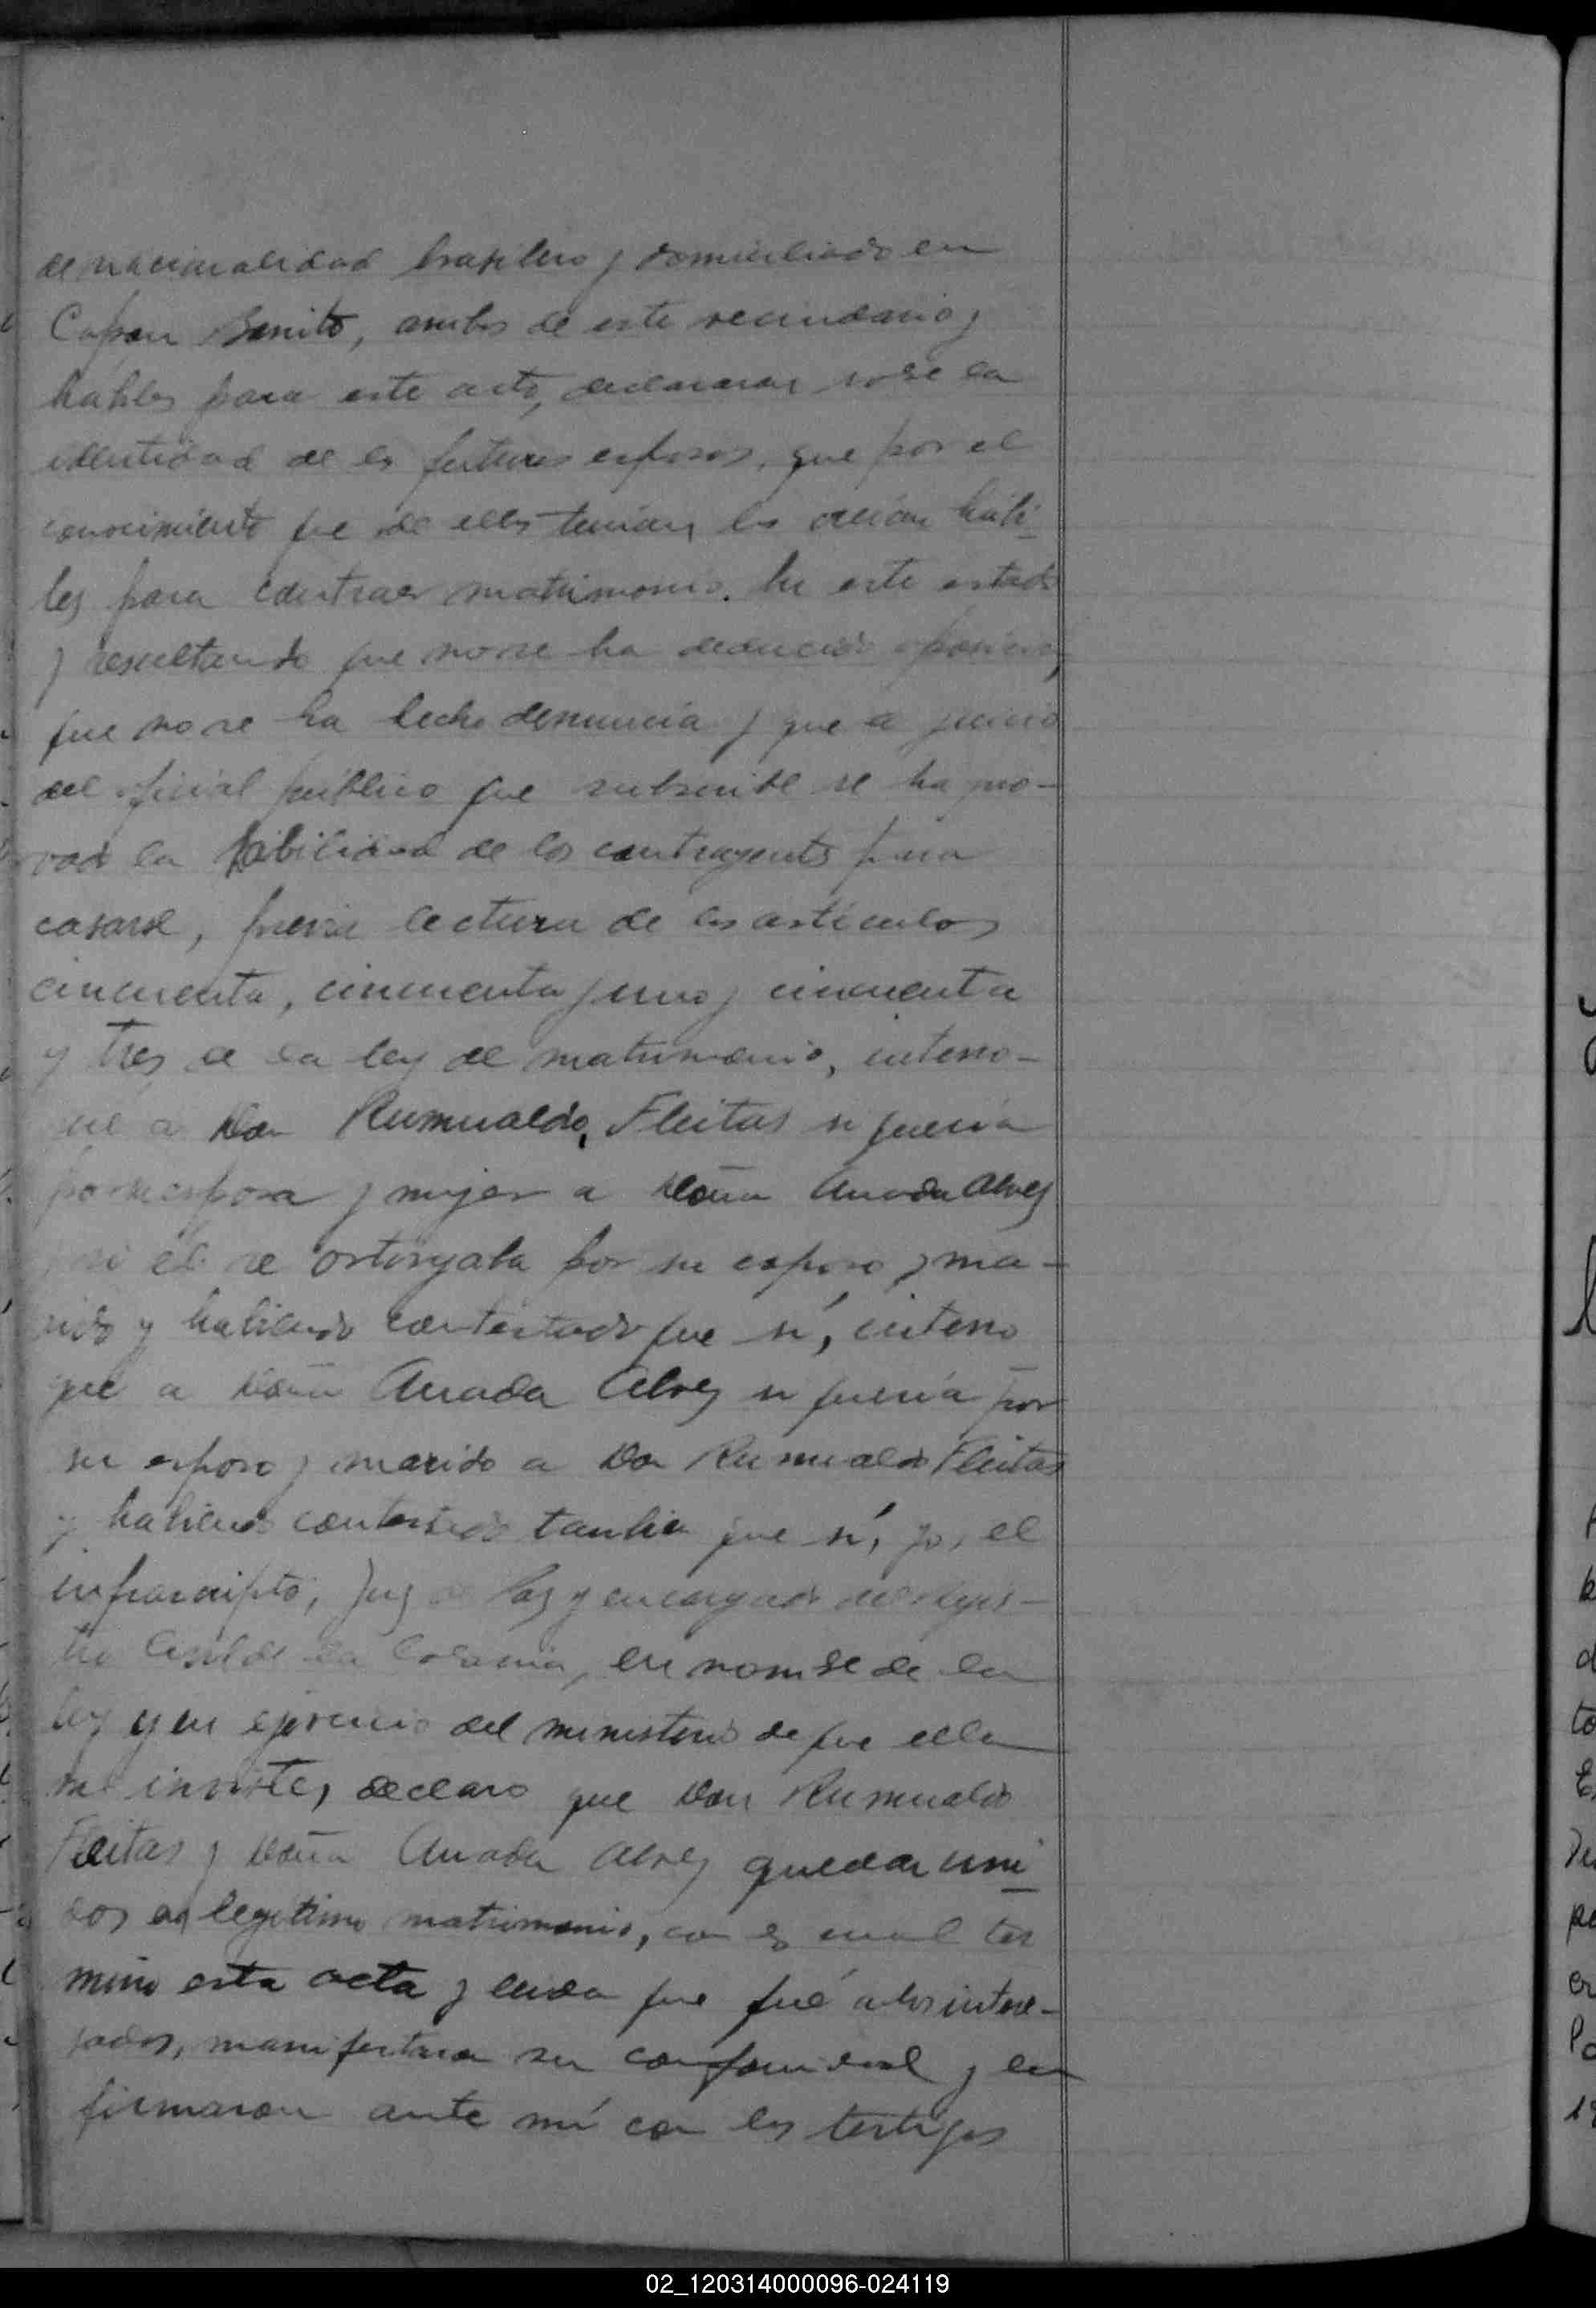 de nacionalidad brasilero y domiciliado en
Capon Bonito, ambos de este vecindario y
habiles para este acto, declararon sobre la
identidad de los futuros esposos, que por el
conocimiento que de ellos tenian, los creían hábi-
les para contraer matrimonio. En este estado
y resultando que no se ha deducido oposicion,
que no se ha hecho denuncia y que a juicio
del oficial público que subscribe se ha pro-
vado la habilidad de los contrayentes para
casarse, previa lectura de los artículos
cincuenta, cincuenta y uno y cincuenta
y tres de la ley de matrimonio, interro-
gué a Don Rumualdo Fleitas si queria
por su esposa y mujer a Doña Anada Alves
y si el se ortorgaba por su esposo y ma-
rido y habiendo contestado que sí, interro
gué a Doña Anada Alves si quería por
su esposo y marido a Don Rumualdo Fleitas
y habiendo contestado tambien que sí, yo, el
infrascripto, Juez de Paz y encargado del Regis-
tro Civil de la Colonia, en nombre de la
ley y en ejercicio del ministerio de que ella
me inviste, declaro que Don Rumualdo
Fleitas y Doña Anada Alves quedan uni-
dos en legítimo matrimonio, con lo cual ter
mino esta acta y leida que fué a los intere-
sados, manifestaron su conformidad y la
firmaron ante mí con los testigos
02_120314000096-024119